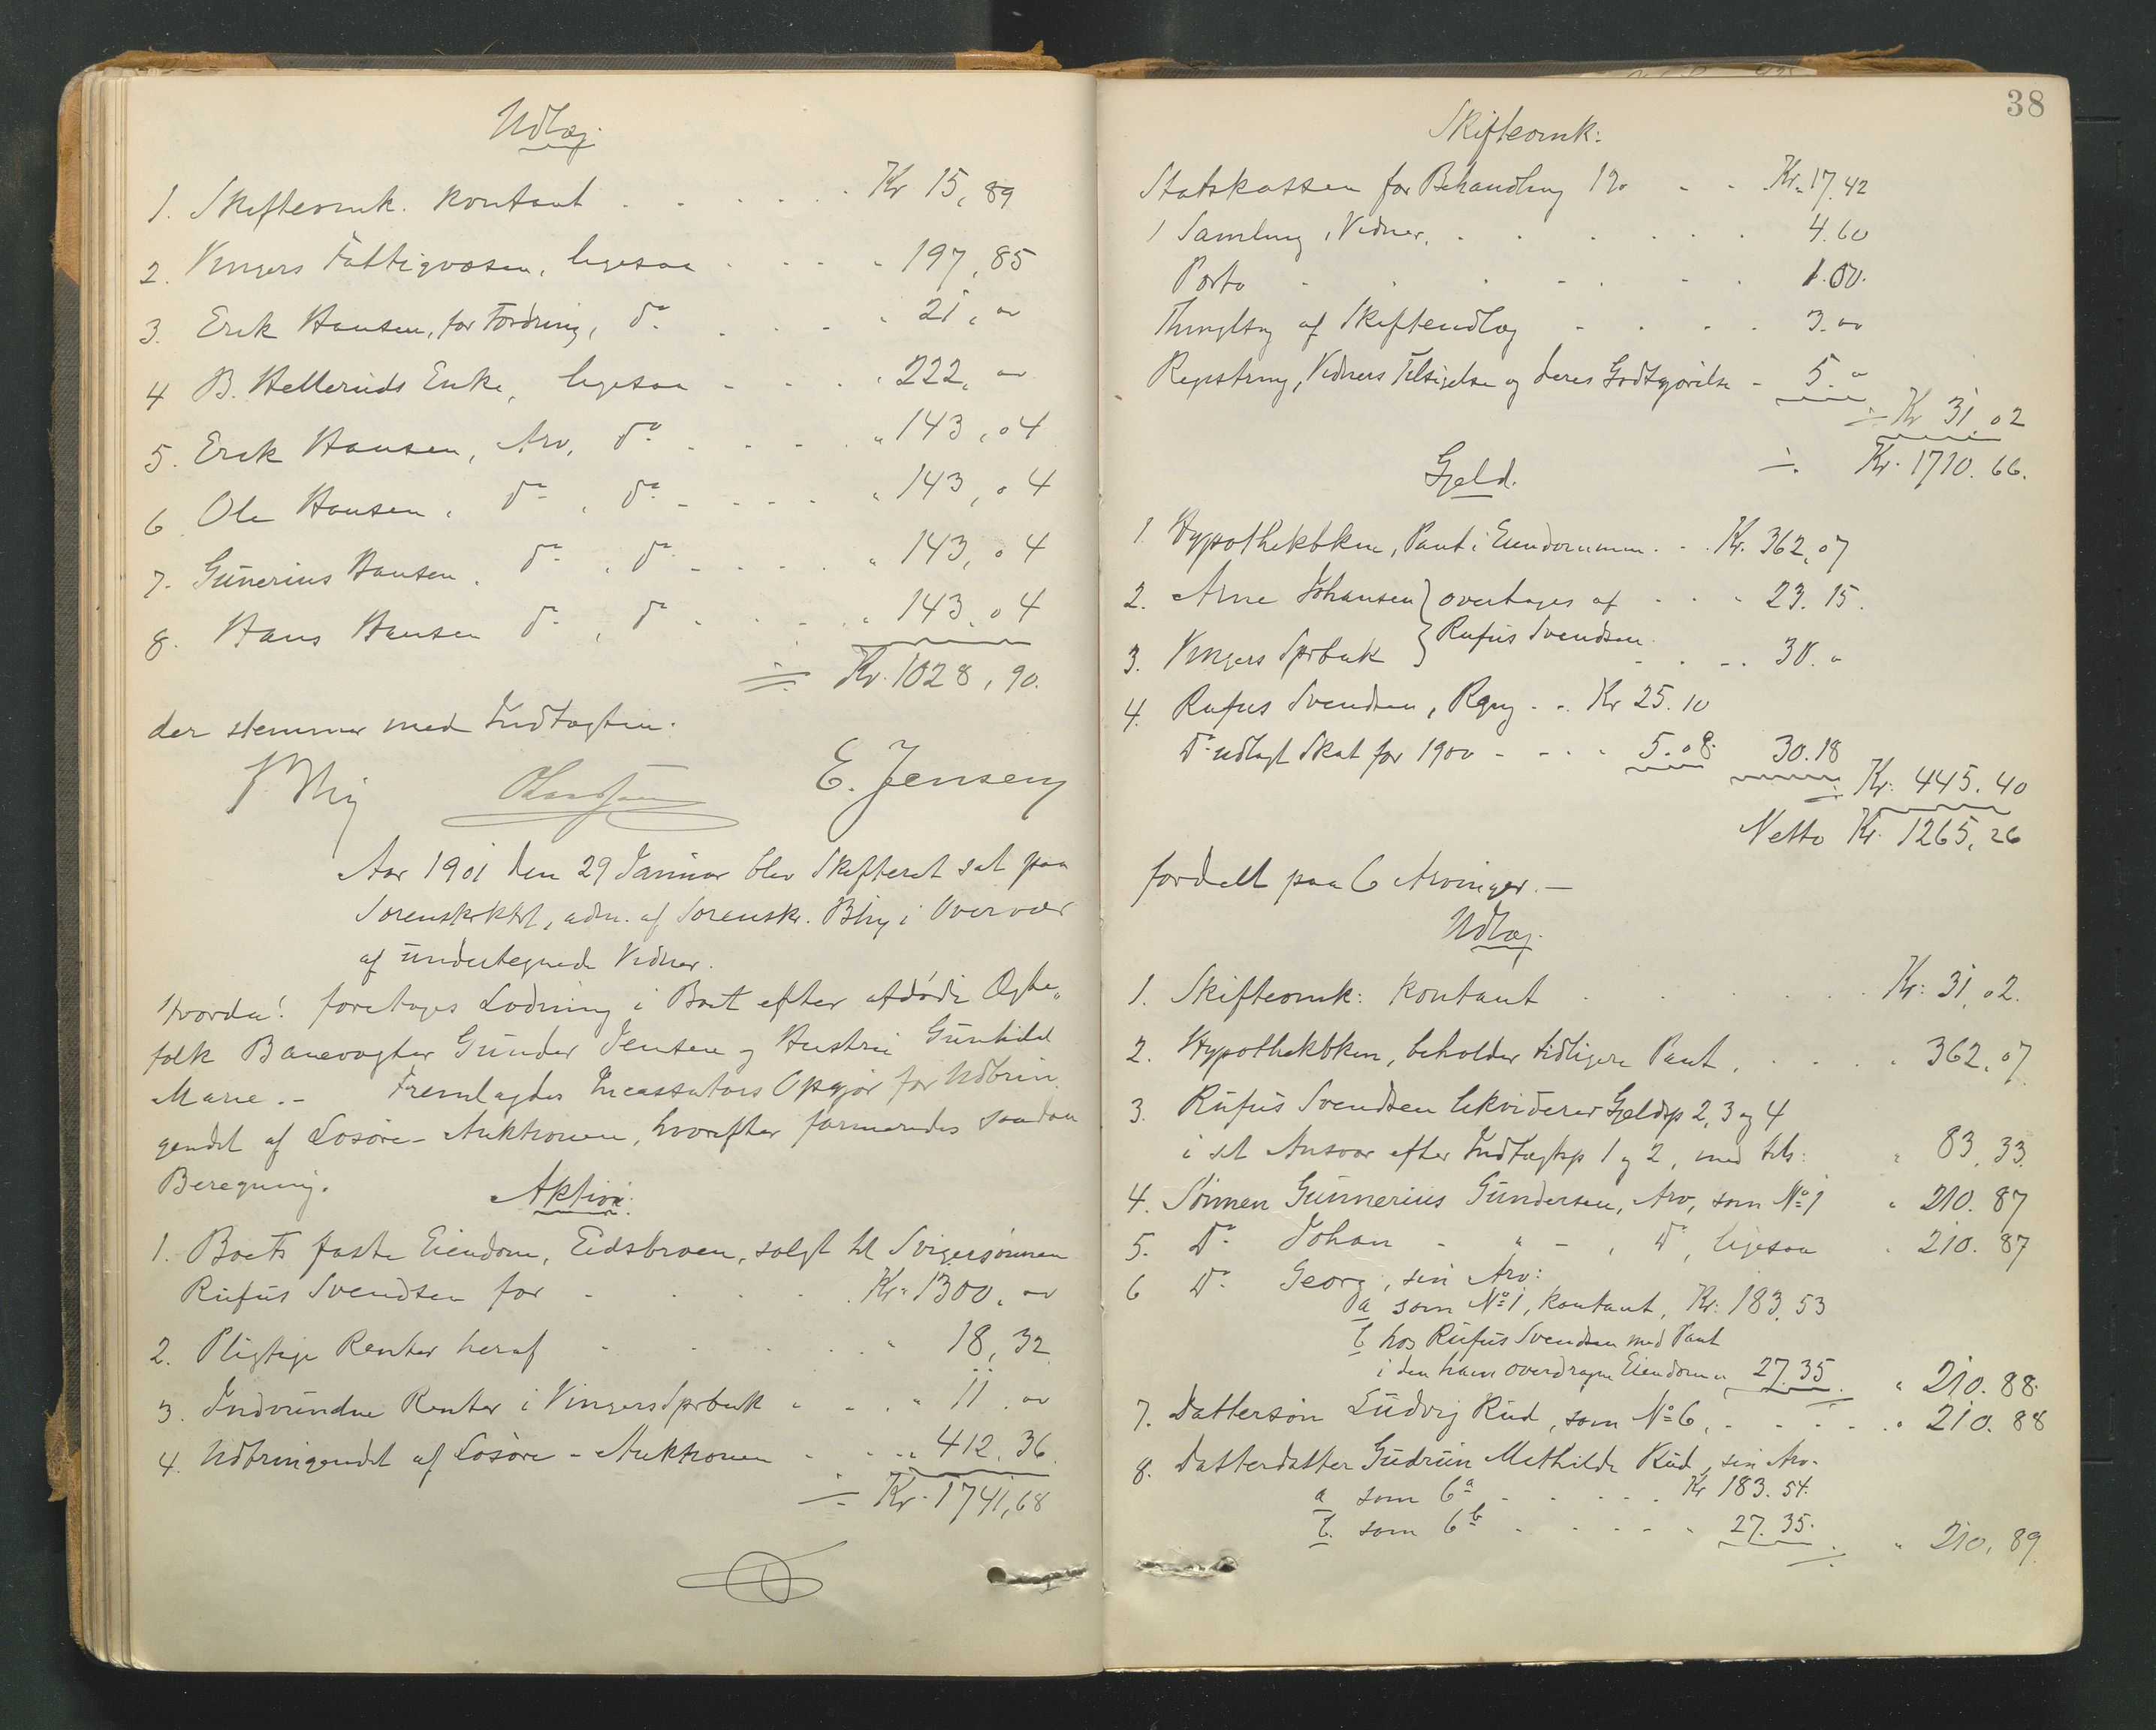 Udlæg.
1. Skifteomk. kontant . . . . . . Kr 15,89
2. Vingers Fattigvæsen, ligesaa . . . . " 197,85
3. Erik Hansen, for Fordring, do . . . " 21,00
4 B. Helleruds Enke, ligesaa - . . . " 222,00
5. Erik Hansen, Arv, do . . . . " 143,04
6 Ole Hansen, do, do - . . . " 143,04
7. Gunerius Hansen, do, do - . . . " 143,04
8. Hans Hansen do, do . . . . " 143.04
÷ Kr. 1028,90.
der stemmer med Indtægten.
E. Jensen
Aar 1901 den 29 Januar blev Skifteret sat paa
Sorenskrktrt, adm. af Sorenskr. Bhy i Overvær
af undertegnede Vidner.
Hvorda! foretoges Lodning i Boet efter afdøde Ægte„
folk Banevogter Gunder Jensen og Hustru Gunhild
Marie. - Fremlagdes Incassators Opgjør for Udbrin„
gendet af Løsøre-Auktionen, hvorefter formeredes saadan
Beregning.
Aktiva:
1. Boets faste Eiendom, Eidsbroen, solgt til Svigersønnen
Rufus Svendsen for - . . . . Kr. 1300,00
2. Pligtige Renter heraf - . . . . " 18,32
3. Indvundne Renter i Vingers Sprbnk " - . " 11.00
4. Udbringendet af Løsøre-Auktionen - . . . " 412.36
÷ Kr. 1741,68
38
Skifteomk:
Statskassen for Behandling 1% - - . Kr. 17.42
1 Samling, Vidner, . . . . . . 4.60
Porto - . . - . - . 1.00.
Thinglsng af Skifteudlæg - . . . 3.00
Regstrng, Vidners Tilsigelse og deres Godtgjørelse - 5.00
÷ Kr 31,02
÷ Kr. 1710.66.
Gjeld.
1. Hypothekbken, Pant i Eiendommen. - . Kr. 362,07
2. Arne Johansen } overtages af - . . " 23.15.
3. Vingers Sprbnk } Rufus Svendsen - . - . 30."
4. Rufus Svendsen, Rgng . . . Kr 25.10
Do udlagt Skat for 1900 - - . . 5.08. 30.18
÷ Kr. 445.40
Netto Kr. 1265,26
fordelt paa 6 Arvinger. -
Udlæg.
1. Skifteomk: kontant . . . . . . Kr: 31,02.
2. Hypothekbken, beholder tidligere Pant, . . . . " 362,07
3. Rufus Svendsen likviderer Gjeldsp 2, 3 og 4
i sit Ansvar efter Indtægtsp 1 og 2, med tils: " 83,33.
4. Sønnen Gunnerius Gundersen, Arv, som No 1 " 210.87
5. Do Johan - " -, Do, ligesaa . 210.87
6 Do. Georg, sin Arv:
a som No 1, kontant, Kr: 183,53
b hos Rufus Svendsen med Pant
i den ham overdragne Eiendom " 27.35 " 210.88.
7. Dattersøn Ludvig Rud, som No 6, - . . . . " 210.88
8. Datterdatter Gudrun Mathilde Rud, sin Arv.
a som 6a . - . . . Kr 183.54.
b. som 6b . - . . . " 27.35. " 210,89.